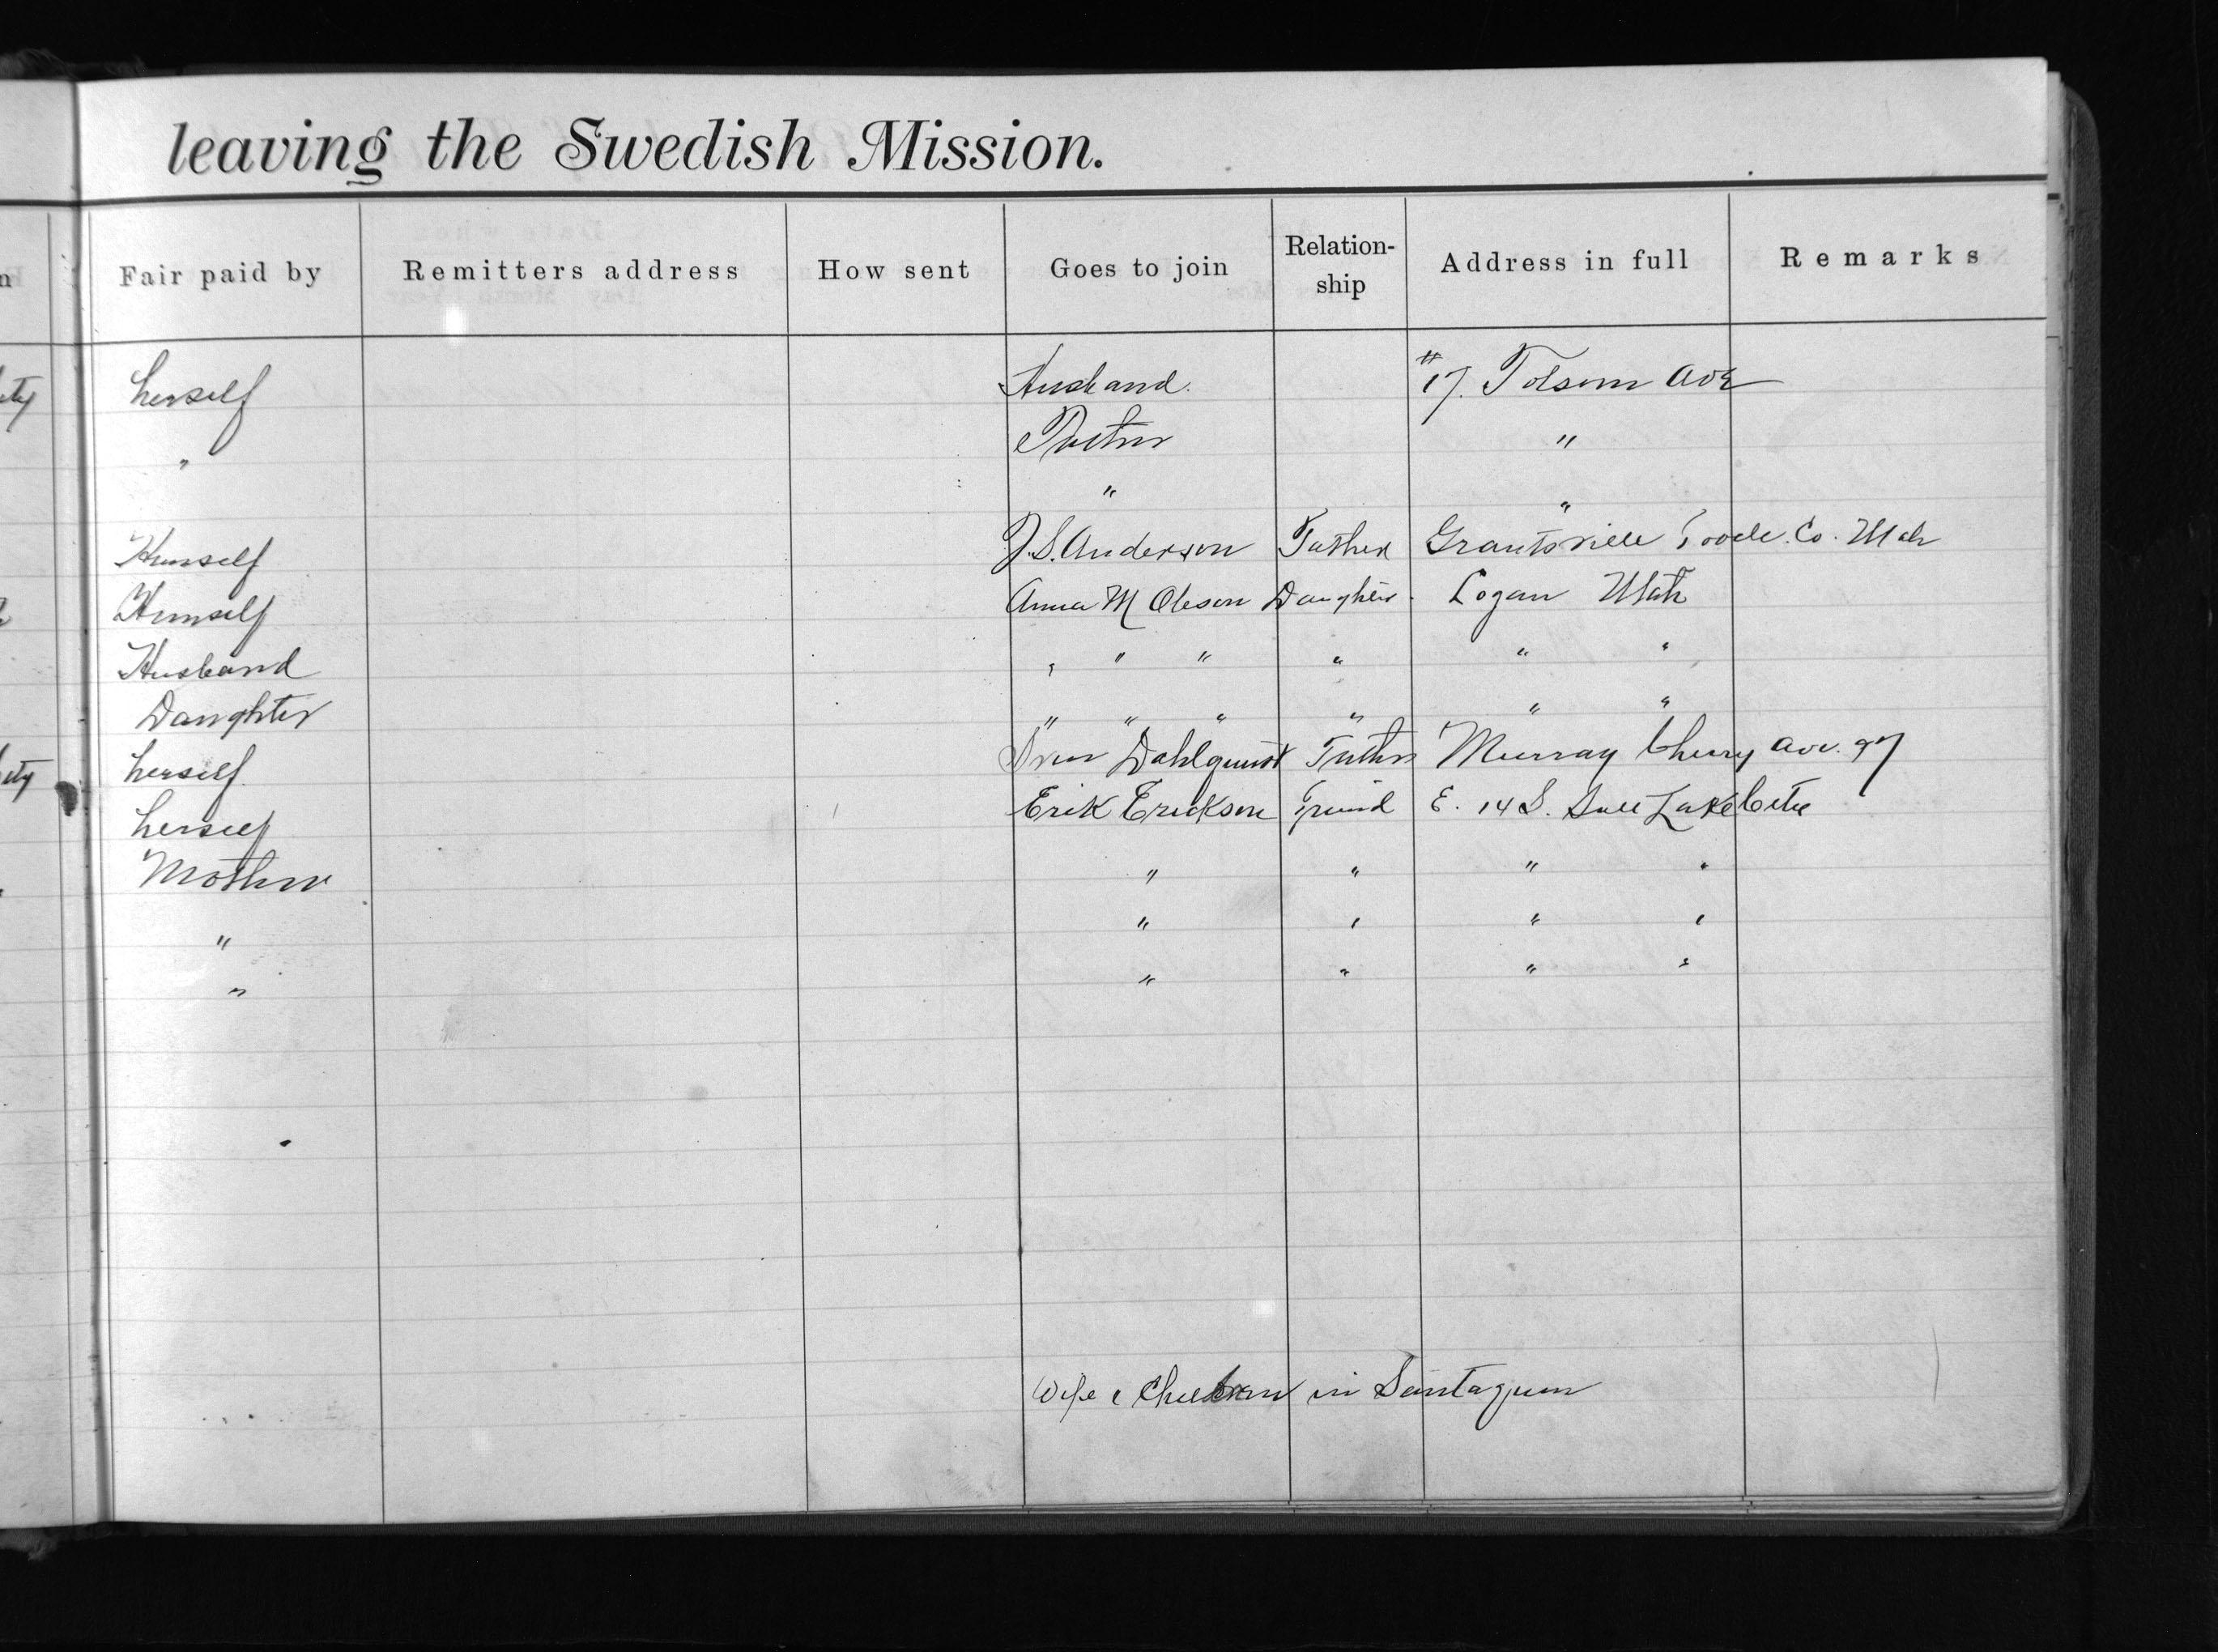 leaving the Swedish Mission.
n Fair paid by Remitters address How sent Goes to join Relation-ship Address in full Remarks
ity herself Husband. #17. Folsom Ave
" "
" "
Himself J.S. Anderson Father Grantsville Tooele. Co. Utah
Himself Anna M Oleson Daughter. Logan Utah
Husband " " " " " "
Daughter " " " " " "
ity herself. Sven Dahlquist Father Murray Cherry Ave. 97
herself Erik Erickson Friend E. 14 S. Salt Lake Citie
Mother " " " "
" " " " "
" " " " "
Wife & Children in Santaquin